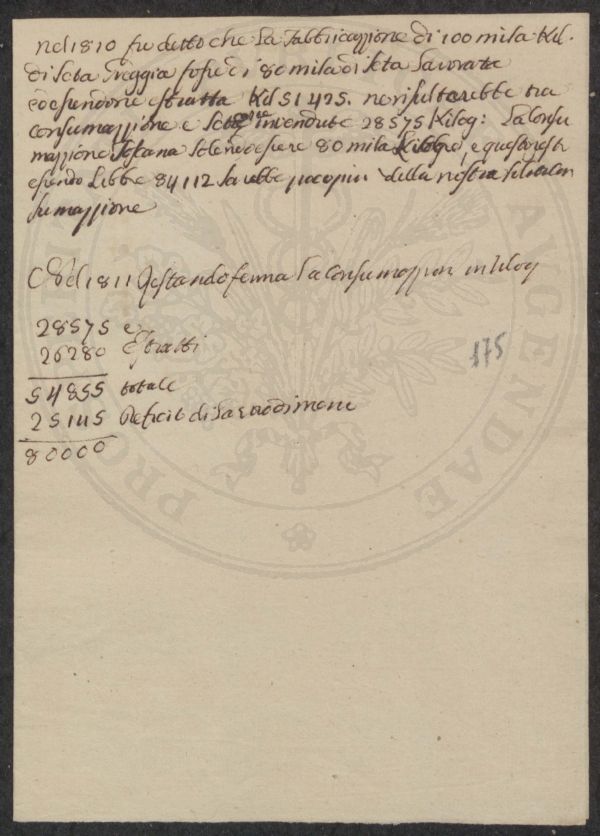 nel 1810 fu detto che la Fabbricazzione di 100 mila Kil.
di Seta Greggia fosse di 80 mila di Seta Lavorata
ed essendone estratta Kil 51425. ne risulterebbe tra
consumazzione e Sete invendute 28575 Kilog: La Consu
mazzione Toscana solendo essere 80 mila Libbre, e queste
essendo Libbre 84112 sarebbe poco piu della nostra solita Con
sumazzione
del 1811 Restando ferma la Consumazzione in Kilog
28575 e
26280 Estratti
54855 totale
25145 Deficit di Lavoro di meno
80000
175
PRO AUGENDAE